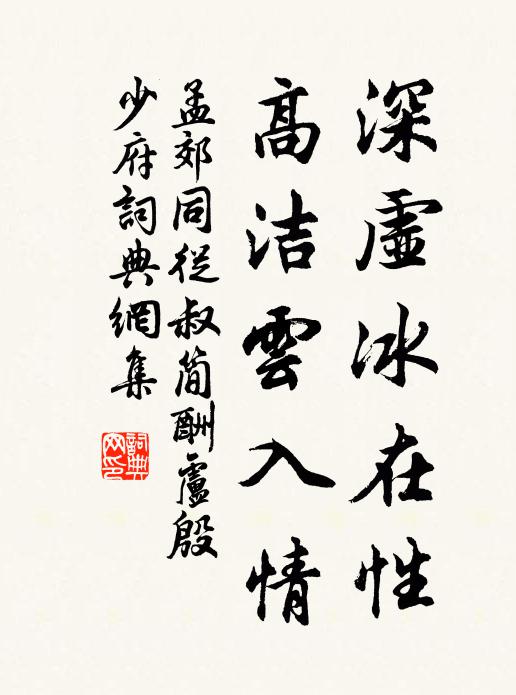 深虛冰在性
高洁雲入情
孟郊同從叔簡酬盧殷
少府詞典網集
詞典
网印